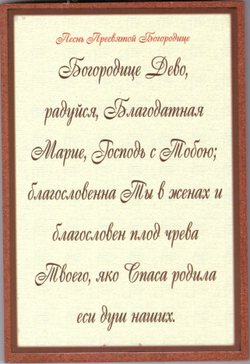 Песнь Пресвятой Богородице
Богородице Дево,
радуйся, Благодатная
Марие, Господь с Тобою;
благословенна Ты в женах и
благословен плод чрева
Твоего, яко Спаса родила
еси душ наших.